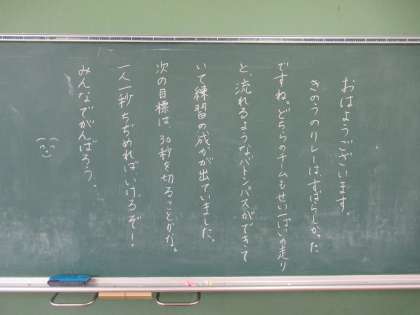 おはようございます。
きのうのリレーは、すばらしかった
ですね。どちらのチームもせいいっぱいの走り
と、流れるようなバトンパスができて
いて練習の成かが出ていました。
次の目標は、30秒を切ることかな。
一人一秒ちぢめれば、いけるぞー!
みんなでがんばろう。